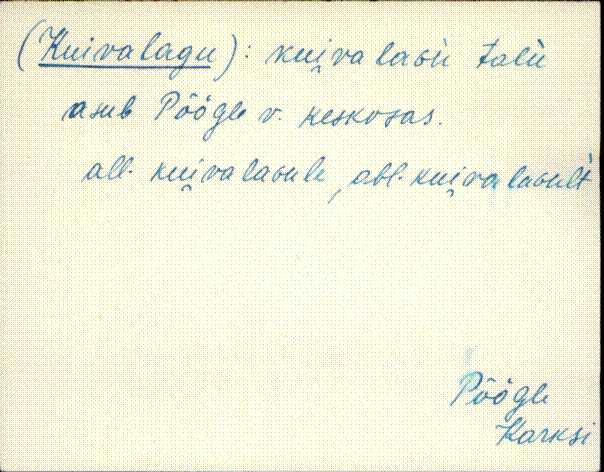 (Kuivalagu): kui̯valaGu talu
asub Pöögle v. keskosas.
all. kui̯valaGule, abl. kui̯valaGult
Pöögle
Karksi